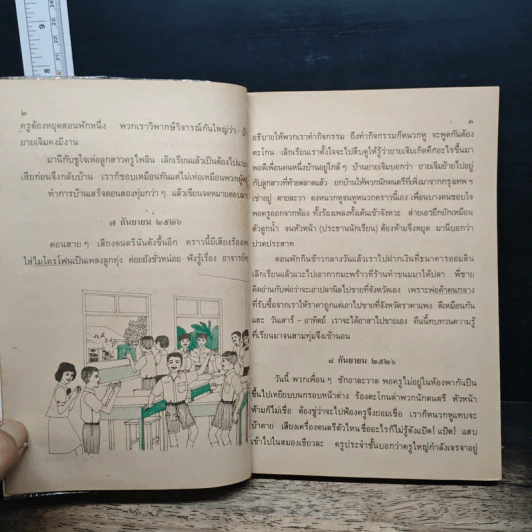 ๒
ครูต้องหยุดสอนพักหนึ่ง พวกเราวิพากษ์วิจารณ์กันใหญ่ว่า
ยายเจิมคงมีงาน
มานีกับชูใจเห่อลูกสาวครูไพลิน เลิกเรียนแล้วเป็นต้องไป
เสียก่อนจึงกลับบ้าน เราก็ชอบเหมือนกันแต่ไม่เห่อเหมือนพวกผู้
ทำการบ้านเสร็จตอนสองทุ่มกว่า ๆ แล้วเขียนจดหมายตอบ
๗ กันยายน ๒๕๒๖
ตอนสาย ๆ เสียงดนตรีนั่นดังขึ้นอีก คราวนี้มีเสียงร้อง
ใส่ไมโครโฟนเป็นเพลงลูกทุ่ง ค่อยยังชั่วหน่อย ฟังรู้เรื่อง อาจารย์
๓
อธิบายให้พวกเราทำกิจกรรม ถึงทำกิจกรรมก็หนวกหู จะพูดกันต้อง
ตะโกน เลิกเรียนเราตั้งใจจะไปสืบดูให้รู้ว่ายายเจิมเกิดคึกอะไรขึ้นมา
พอดีเพื่อนคนหนึ่งบ้านอยู่ใกล้ ๆ บ้านยายเจิมบอกว่า ยายเจิมย้ายไปอยู่
กับลูกสาวที่ท้ายตลาดแล้ว ยกบ้านให้พวกนักดนตรีที่เพิ่งมาจากกรุงเทพ ฯ
เช่าอยู่ ตายละวา คงหนวกหูจนหูหนวกคราวนี้เอง เพื่อนบางคนชอบใจ
พอครูออกจากห้อง ทั้งร้องเพลงทั้งเต้นเข้าจังหวะ ส่ายเอวยึกยักเหมือน
ตัวลูกน้ำ จนหัวหน้า (ประธานนักเรียน) ต้องห้ามจึงหยุด มานีบอกว่า
ปวดประสาท
ตอนพักกินข้าวกลางวันแล้วเราไปฝากเงินที่ธนาคารออมสิน
เลิกเรียนแล้วแวะไปเอากากมะพร้าวที่ร้านทำขนมมาให้ปลา พี่ชาย
คิดอ่านกับพ่อว่าจะเอาปลานิลไปขายที่จังหวัดเอง เพราะพ่อค้าคนกลาง
ที่รับซื้อจากเราให้ราคาถูกแต่เอาไปขายที่จังหวัดราคาแพง ดีเหมือนกัน
แฮะ วันเสาร์ - อาทิตย์ เราจะได้อาสาไปขายเอง คืนนี้ทบทวนความรู้
ที่เรียนมาจนสามทุ่มจึงเข้านอน
๘ กันยายน ๒๕๒๖
วันนี้ พวกเพื่อน ๆ ชักอาละวาด พอครูไม่อยู่ในห้องพากันปีน
ขึ้นไปเหยียบบนกรอบหน้าต่าง ร้องตะโกนด่าพวกนักดนตรี หัวหน้า
ห้ามก็ไม่เชื่อ ต้องขู่ว่าจะไปฟ้องครูจึงยอมเชื่อ เราก็หนวกหูแทบจะ
บ้าตาย เสียงเครื่องดนตรีตัวไหนชื่ออะไรก็ไม่รู้ดังแป๊ด! แป๊ด! แสบ
เข้าไปในสมองเชียวละ ครูประจำชั้นบอกว่าครูใหญ่กำลังเจรจาอยู่